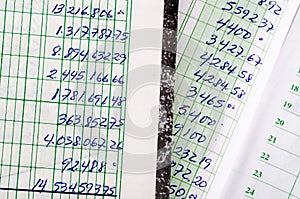 13.216.806
1.317.787.75
8.894.632.29
2.495.166.66
1.781.691.48
363.852.75
4.038.067.20
92.488
14.534.593.75
8.92
5592.37
4400
3.427.67
4284.58
4284.58
3465
5400
9100
232.19
972.20
50
18
19
20
21
22
23
24